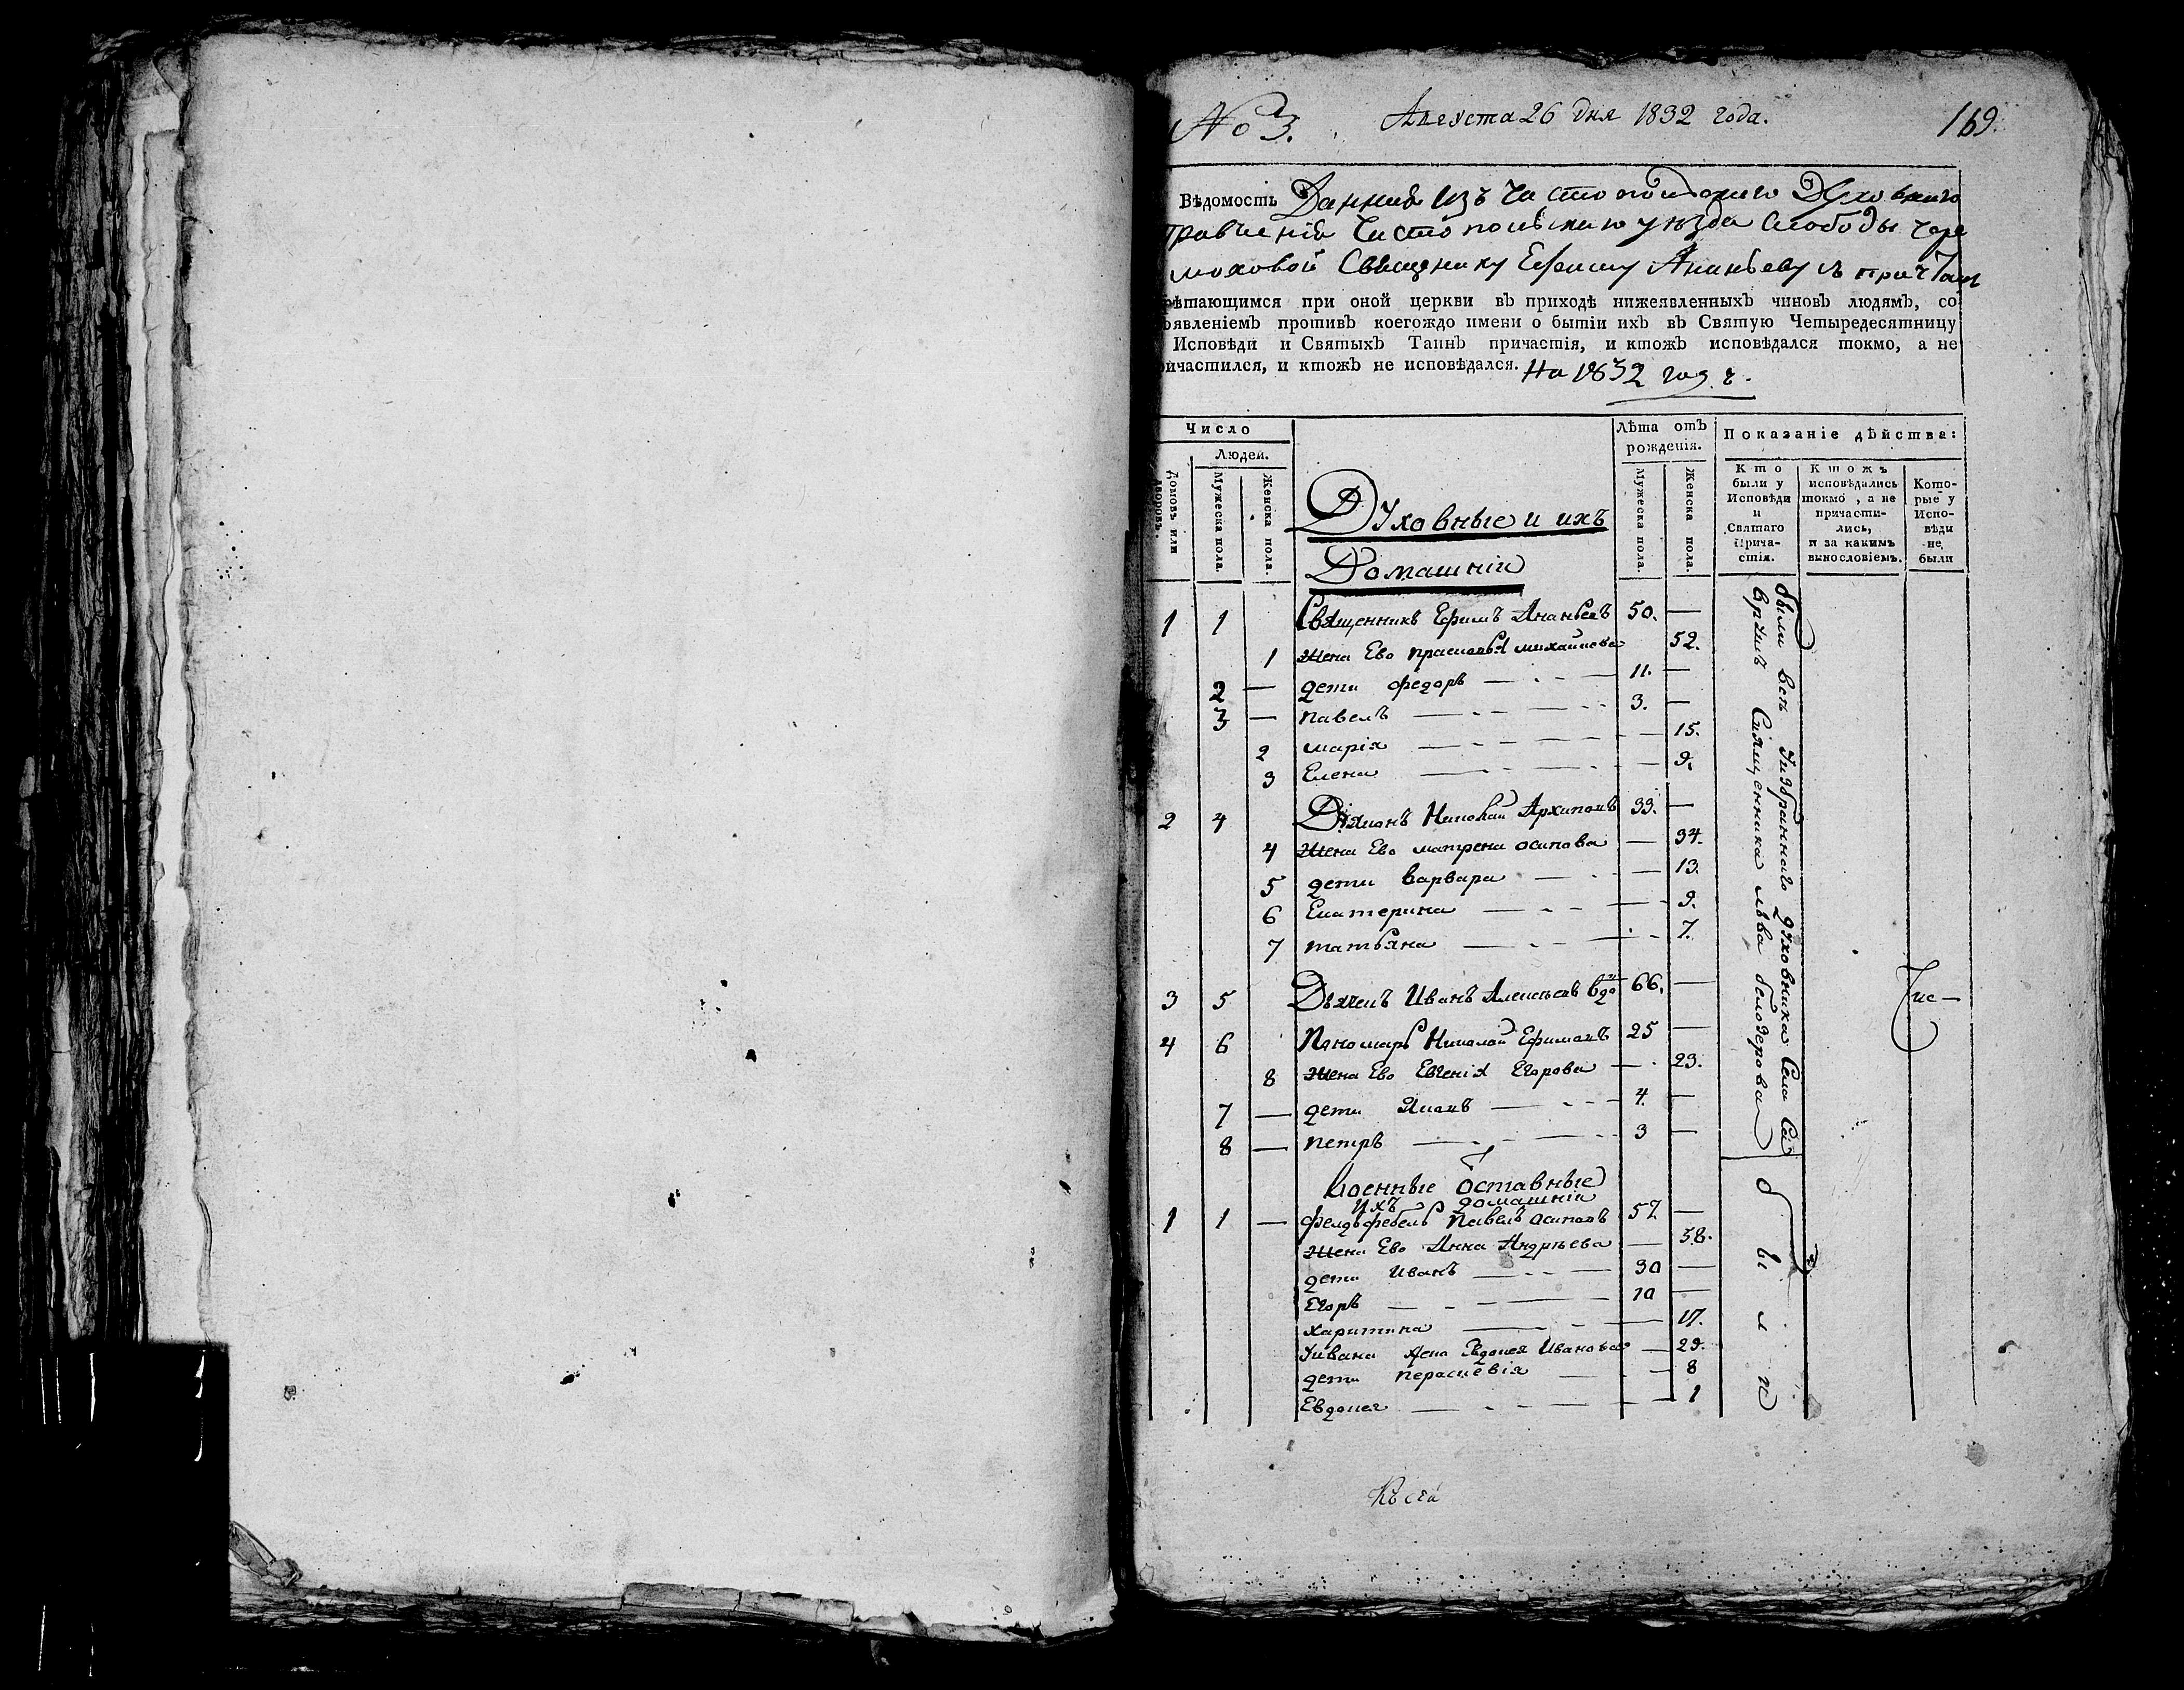 No 3. Августа 26 дня 1832 года. 169.
Вѣдомость Данная изъ Чистопольскаго Духовнаго
Правленія Чистопольскаго уѣзда Слободы Чере
муховой Священнику Ефиму Ананьеву съ причтом
рѣтающимся при оной церкви въ приходѣ нижеявленныхъ чиновъ людямъ, со
ъявленіемъ противъ коегождо имени о бытіи ихъ въ Святую Четыредесятницу
Исповѣди и Святыхъ Таинъ причастія, и ктожъ исповѣдался токмо, а не
ричастился, и ктожъ не исповѣдался. На 1832 годъ.
Число
Людей.
Домовъ или дворовъ.
Мужеска пола.
Женска пола.
Духовные и ихъ
Домашніи
Лѣта отъ рожденія.
Мужеска пола.
Женска пола.
Показаніе дѣйства:
Кто были у Исповѣди и Святаго Прича-стія.
Ктожъ исповѣдались токмо, а не причасти-лись, и за какимъ винословіемъ.
Кото-рые у Испо-вѣди не были
1 1 Священникъ Ефимъ Ананьевъ 50. —
1 Жена Ево Прасковья Михайлова 52.
2 — дети Федоръ — 11. —
3 — Павелъ — 3. —
2 Марія — 15.
3 Елена — 9.
2 4 Діяконъ Николай Архиповъ 33. —
4 Жена Ево Матрена Осипова — 34.
5 дети Варвара — 13.
6 Екатерина — 9.
7 Татьяна — 7.
3 5 Дьячекъ Иванъ Алексѣевъ вдо 66. —
4 6 Пономарь Николай Ефимовъ 25 —
8 Жена Ево Евгенія Егорова — 23.
7 — дети Яковъ — 4. —
8 — Петръ — 3 —
Военные Оставные
ихъ домашніи
1 1 — Фелдъфебель Павелъ Осиповъ 57 —
Жена Ево Анна Андрѣева — 58.
дети Иванъ — 30 —
Егоръ — 10 —
Харитина — 17.
Уивана жена Евдокея Иванова — 29.
дети Перасковія — 8
Евдокея — 1
были вси духовника Села
Священника Льва Белозерова
были